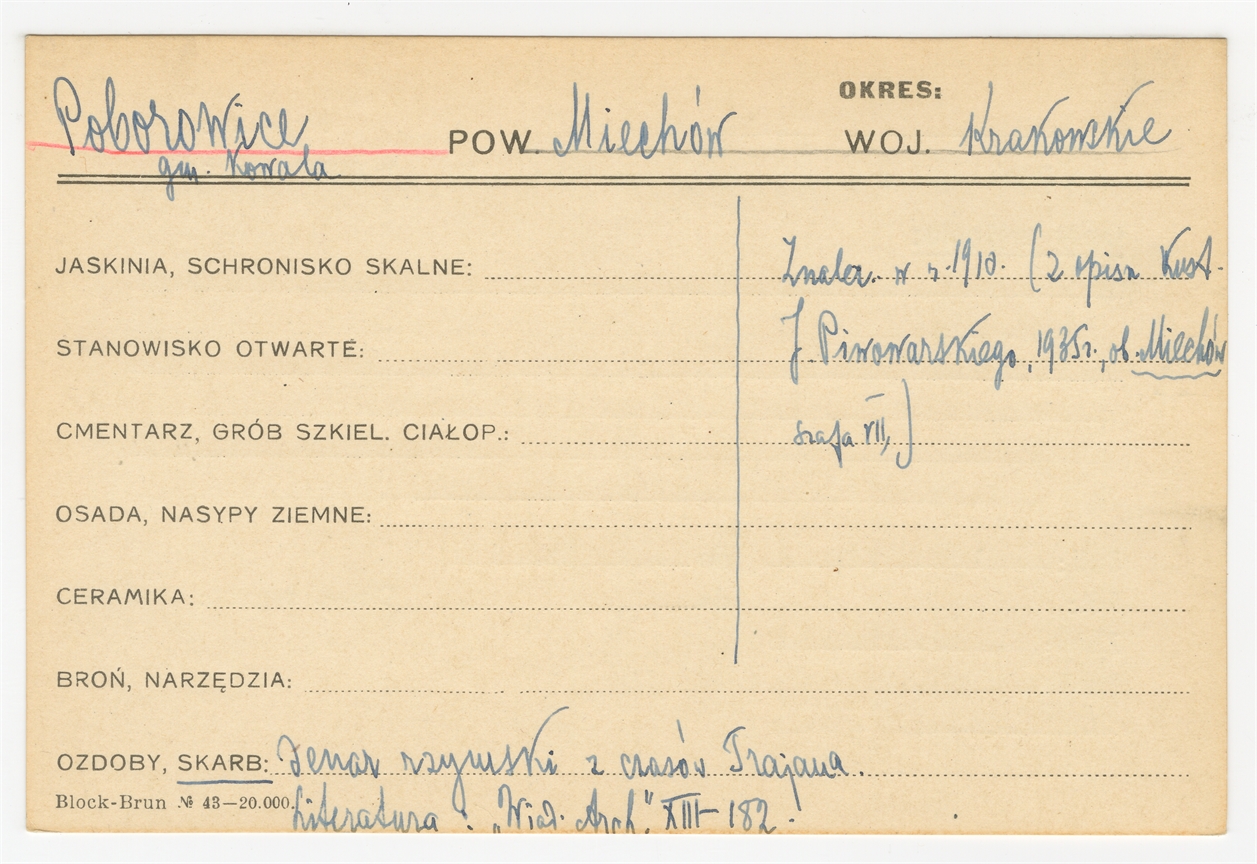 OKRES:
Poborowice POW. Miechów WOJ. Krakowskie
gm. Kowala
JASKINIA, SCHRONISKO SKALNE: Znalez. w r. 1910. (z opisu Kust.
STANOWISKO OTWARTE: J. Piwowarskiego, 1935r., ob. Miechów
CMENTARZ, GRÓB SZKIEL. CIAŁOP.: szafa VII,)
OSADA, NASYPY ZIEMNE:
CERAMIKA:
BROŃ, NARZĘDZIA:
OZDOBY, SKARB: Denar rzymski z czasów Trajana.
Block-Brun № 43—20.000. Literatura: „Wiad. Arch." XIII-182.